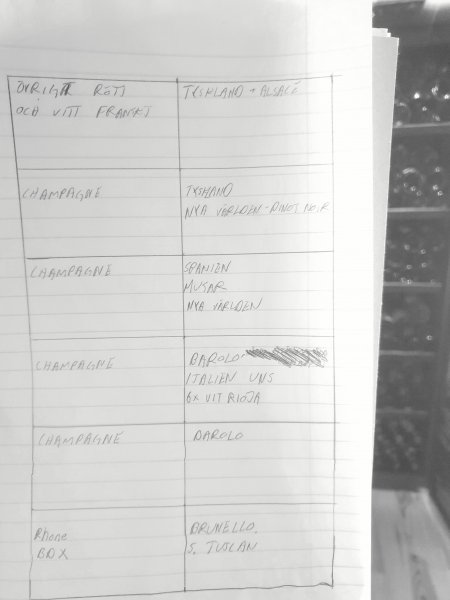 ÖVRIGT RÖTT
OCH VITT FRANSKT
TYSKLAND + ALSACE
CHAMPAGNE
TYSKLAND
NYA VÄRLDEN - PINOT NOIR
CHAMPAGNE
SPANIEN
MUSAR
NYA VÄRLDEN
CHAMPAGNE
BAROLO
ITALIEN
6x VIT RIOJA
CHAMPAGNE
BAROLO
Rhone
BDX
BRUNELLO,
S. TUSCAN